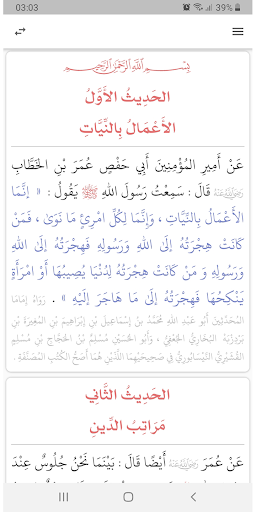 03:03 39%
بِسْمِ اللَّهِ الرَّحْمَٰنِ الرَّحِيمِ
الحَدِيثُ الأَوَّلُ
الأَعْمَالُ بِالنِّيَّاتِ
عَنْ أَمِيرِ المُؤْمِنِينَ أَبِي حَفْصٍ عُمَرَ بْنِ الخَطَّابِ
رَضِيَ اللَّهُ عَنْهُ قَالَ : سَمِعْتُ رَسُولَ اللهِ ﷺ يَقُولُ : « إِنَّمَا
الأَعْمَالُ بِالنِّيَّاتِ ، وَإِنَّمَا لِكُلِّ امْرِئٍ مَا نَوَىٰ ، فَمَنْ
كَانَتْ هِجْرَتُهُ إِلَى اللهِ وَرَسُولِهِ فَهِجْرَتُهُ إِلَى اللهِ
وَرَسُولِهِ وَ مَنْ كَانَتْ هِجْرَتُهُ لِدُنْيَا يُصِيبُهَا أَوْ امْرَأَةٍ
يَنْكِحُهَا فَهِجْرَتُهُ إِلَى مَا هَاجَرَ إِلَيْهِ » . رَوَاهُ إِمَامَا
المُحَدِّثِينَ أَبُو عَبْدِ اللهِ مُحَمَّدُ بْنُ إِسْمَاعِيلَ بْنِ إِبْرَاهِيمَ بْنِ المُغِيرَةِ بْنِ
بَرْدِزْبَهْ البُخَارِيُّ الجُعْفِيُّ ، وَأَبُو الحُسَيْنِ مُسْلِمُ بْنُ الحَجَّاجِ بْنِ مُسْلِمٍ
القُشَيْرِيُّ النَّيْسَابُورِيُّ فِي صَحِيحَيْهِمَا اللَّذَيْنِ هُمَا أَصَحُّ الكُتُبِ المُصَنَّفَةِ .
الحَدِيثُ الثَّانِي
مَرَاتِبُ الدِّينِ
عَنْ عُمَرَ رَضِيَ اللَّهُ عَنْهُ أَيْضًا قَالَ : بَيْنَمَا نَحْنُ جُلُوسٌ عِنْدَ